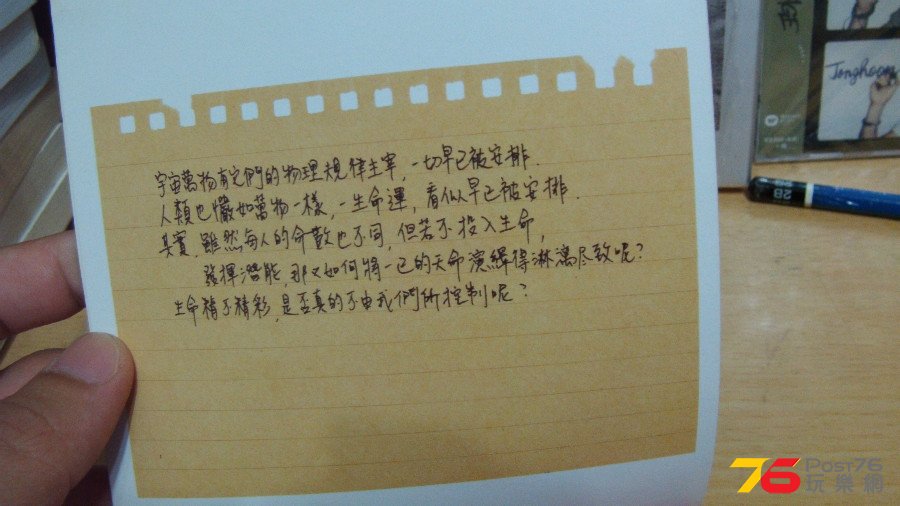 宇宙萬物有它們的物理規律主宰，一切早已被安排．
人類也儼如萬物一樣，一生命運，看似早已被安排．
其實，雖然每人的命數也不同，但若不投入生命，
發揮潛能，那又如何將一己的天命演繹得淋漓尽致呢？
生命精不精彩，是否真的不由我們所控制呢？
Jonghoon
2B
76 Post76
玩樂網